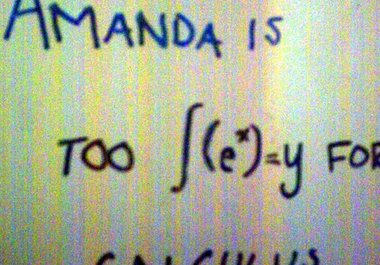 AMANDA IS
TOO ∫(eˣ)=y FOR
CALCULUS